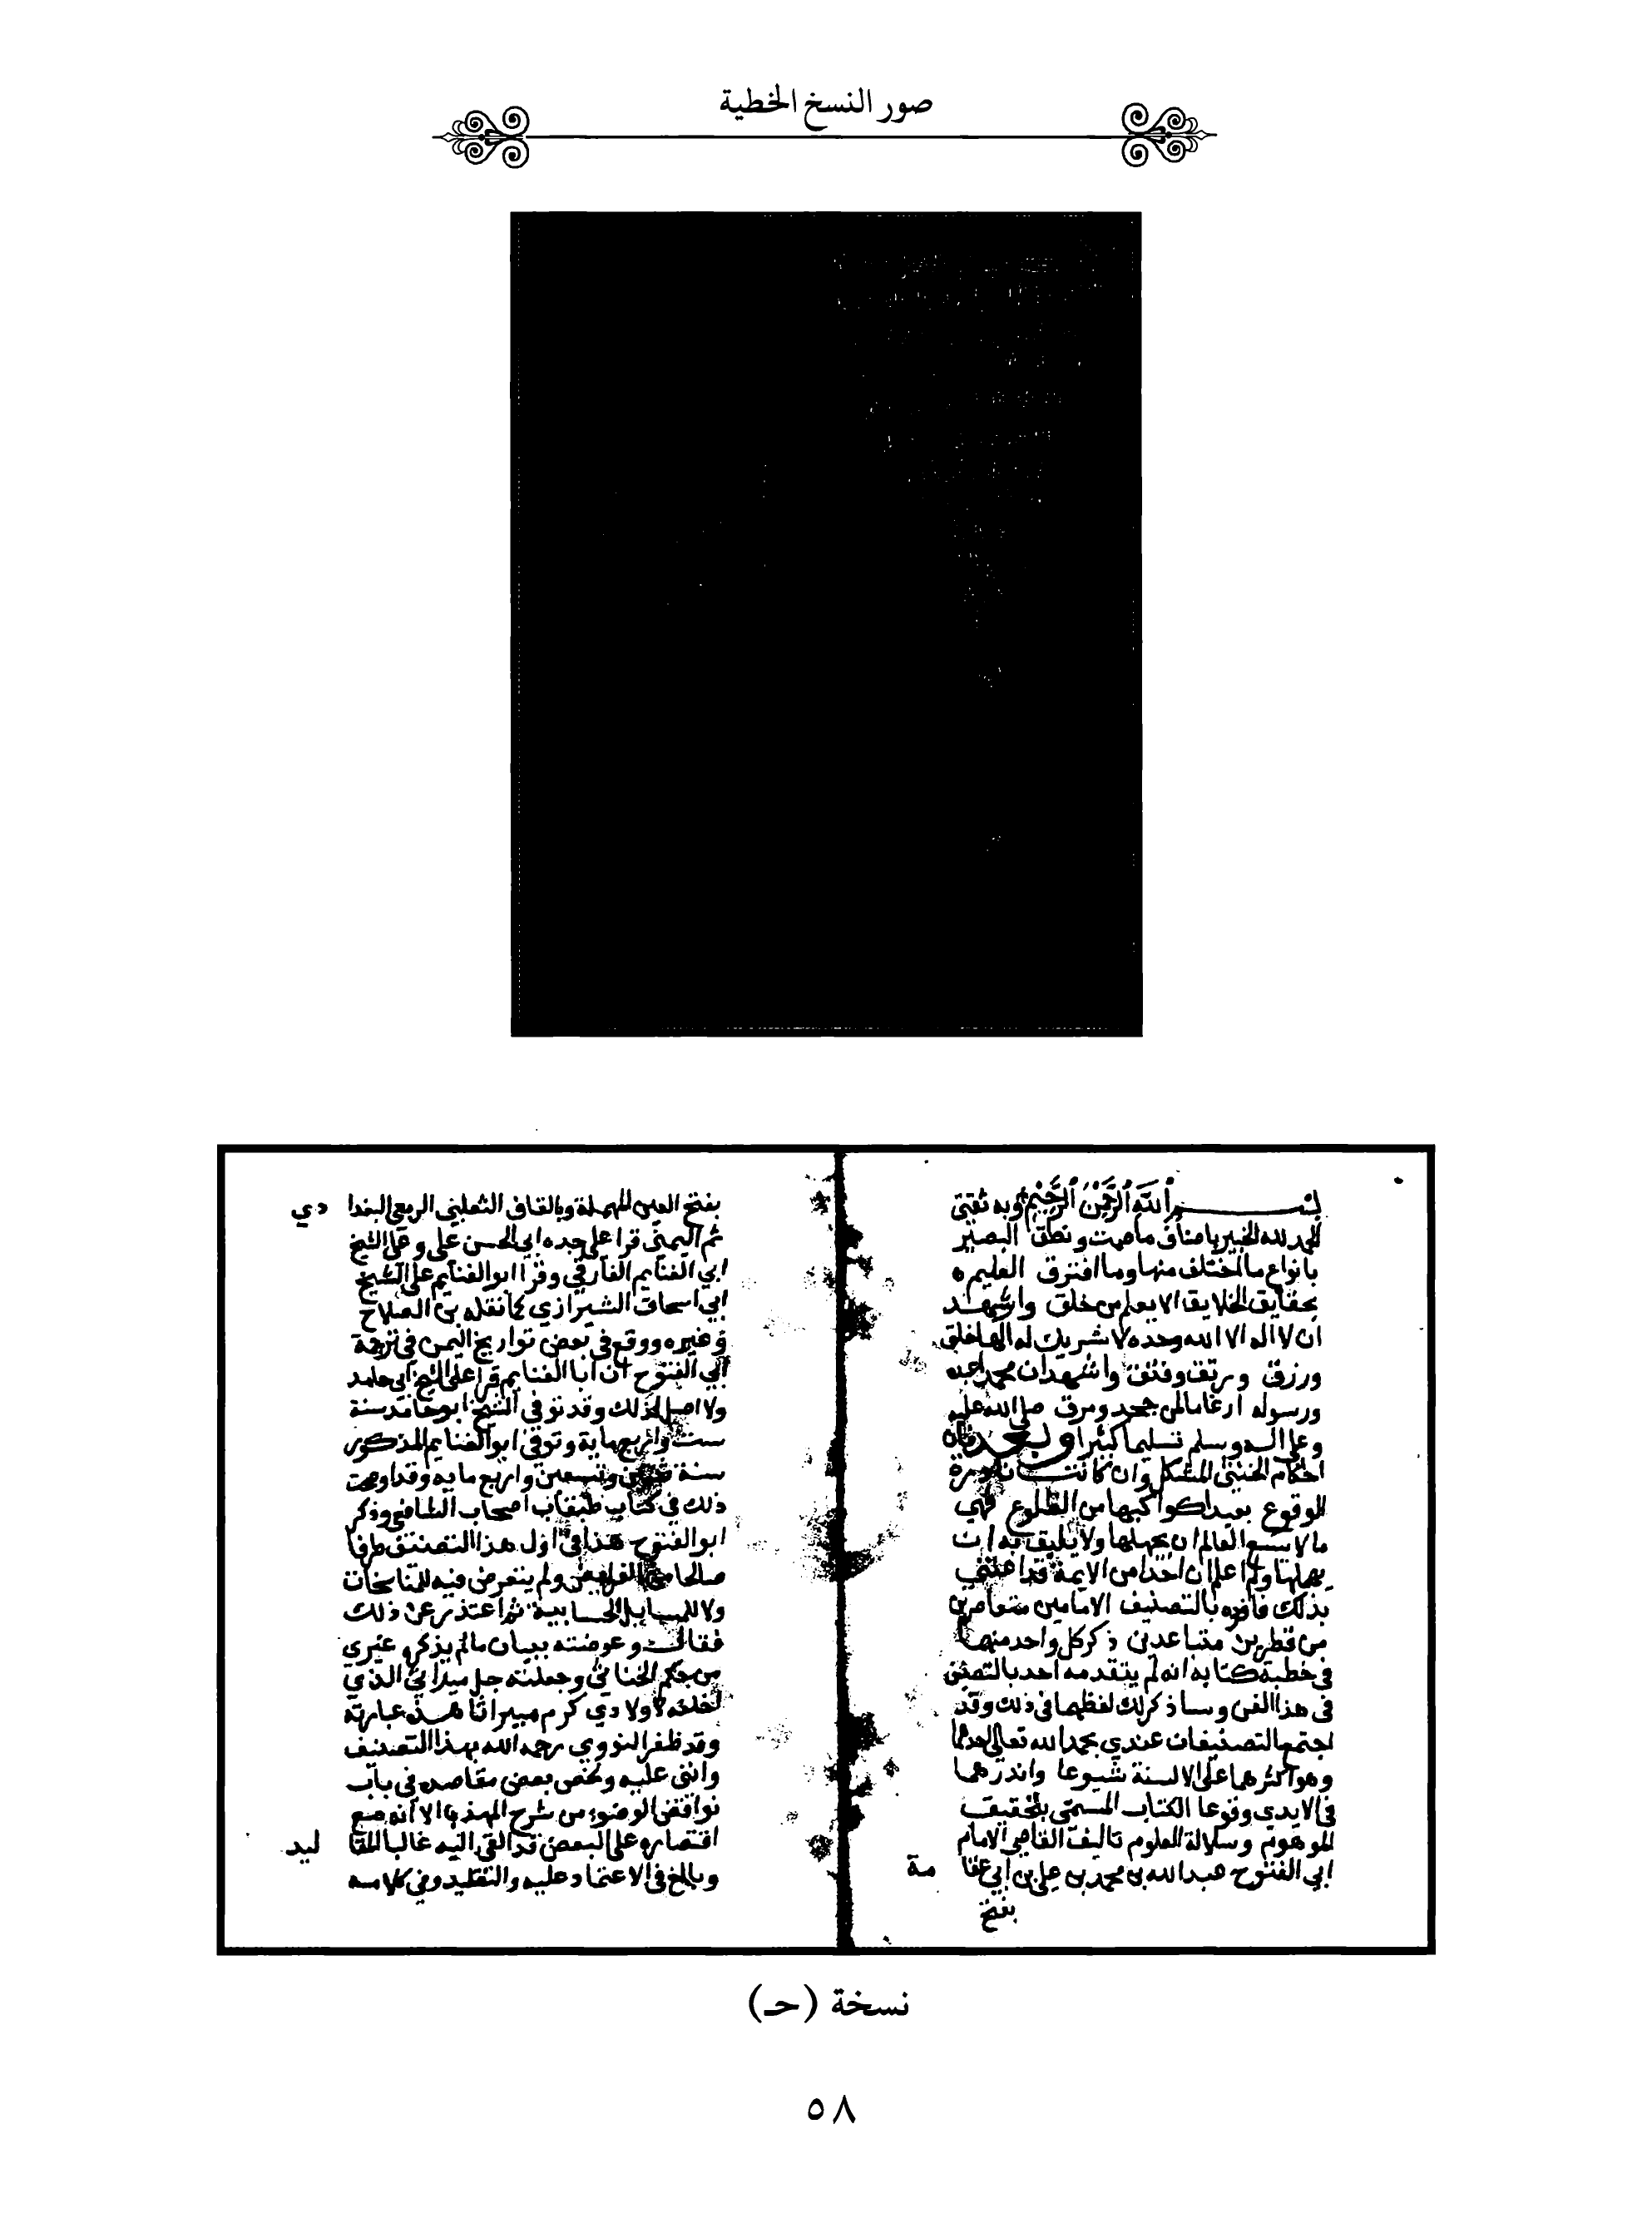 صور النسخ الخطية
بسم الله الرحمن الرحيم وبه ثقتي
الحمد لله الخبير باصناف ما صمت ونطق البصير
بانواع ما اختلف منها وما افترق العليم
بحقايق الخلايق الا يعلم من خلق واشهد
ان لا اله الا الله وحده لا شريك له الها خلق
ورزق ورتق وفتق واشهد ان محمدا عبده
ورسوله ارغاما لمن جحد ومرق صلى الله عليه
وعلى اله وسلم تسليما كثيرا وبعد فان
احكام الخنثى المشكل وان كانت نادرة
الوقوع بعيدا كواكبها من الطلوع فهي
ما لا يسع العالم ان يجهلها ولا يليق به ان
يهملها ولم اعلم ان احدا من الايمة قد اعتنى
بذلك فافرده بالتصنيف الا امامين متعاصرين
من قطرين متباعدين ذكر كل واحد منهما
في خطبة كتابه انه لم يتقدمه احد بالتصنيف
في هذا الفن وساذكر لك لفظهما في ذلك وقد
اجتمع التصنيفان عندي بحمد الله تعالى احدهما
وهو اكثرهما على الالسنة شيوعا واندرهما
في الايدي وقوعا الكتاب المسمى بتحقيق
الموهوم وسلالة العلوم تاليف القاضي الامام
ابي الفتوح عبد الله بن محمد بن علي بن ابي عقا مة
بفتح
بفتح العين المهملة وبالقاف الثعلبي الربعي البغدا دي
ثم اليمني قرا على جده ابي الحسن علي وعلى الشيخ
ابي الغنايم الفارقي وقرا ابو الغنايم على الشيخ
ابي اسحاق الشيرازي كما نقله بن الصلاح
وغيره ووقع في بعض تواريخ اليمن في ترجمة
ابي الفتوح ان ابا الغنايم قرا على الشيخ ابي حامد
ولا اصل لذلك وقد توفي الشيخ ابو حامد سنة
ست واربع ماية وتوفي ابو الغنايم المذكور
سنة وتسعين واربع مايه وقد اوضحت
ذلك في كتاب طبقات اصحاب الشافعي وذكر
ابو الفتوح هذا في اول هذا التصنيف طرفا
صالحا من الفرايض ولم يتعرض فيه للمناسخات
ولا للمسايل الحسابية ثم اعتذر عن ذلك
فقال وعوضته ببيان ما لم يذكره غيري
من حكم الخناثي وجعلته جل ميراثي الذي
اخلفه لاولادي كرم ميراثا هذه عبارته
وقد ظفر النووي رحمه الله بهذا التصنيف
واثنى عليه ولخص بعض مقاصده في باب
نواقض الوضوء من شرح المهذب الا انه مع
اقتصاره على البعض قد القى اليه غالبا المقا ليد
وبالغ في الاعتماد عليه والتقليد وفي كلامه
نسخة (حـ)
٥٨